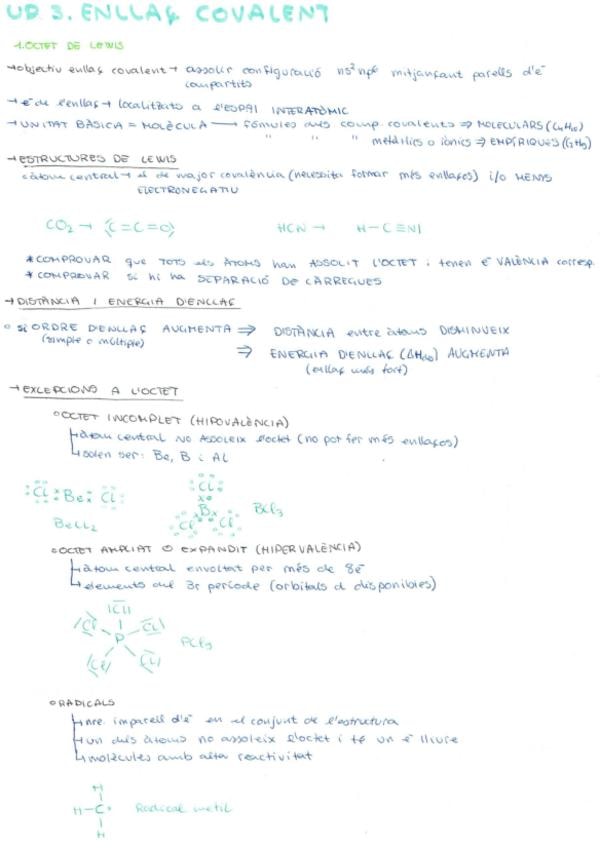 UD 3. ENLLAÇ COVALENT
1. OCTET DE LEWIS
→objectiu enllaç covalent → assolir configuració ns²np⁶ mitjançant parells d'e⁻
compartits
→e⁻ de l'enllaç → localitzats a l'ESPAI INTERATÒMIC
→UNITAT BÀSICA = MOLÈCULA → fórmules dels comp. covalents ⇒ MOLECULARS (C₄H₁₀)
" " " metàl·lics o iònics ⇒ EMPÍRIQUES (C₂H₅)
→ESTRUCTURES DE LEWIS
àtom central → el de major covalència (necessita formar més enllaços) i/o MENYS
ELECTRONEGATIU
CO₂ → ⟨O=C=O⟩ HCN → H-C≡N|
*COMPROVAR que TOTS els ÀTOMS han ASSOLIT L'OCTET i tenen e⁻ VALÈNCIA corresp.
*COMPROVAR si hi ha SEPARACIÓ DE CÀRREGUES
→DISTÀNCIA I ENERGIA D'ENLLAÇ
o si ORDRE D'ENLLAÇ AUGMENTA ⇒ DISTÀNCIA entre àtoms DISMINUEIX
(simple o múltiple)
⇒ ENERGIA D'ENLLAÇ AUGMENTA
(enllaç més fort)
→EXCEPCIONS A L'OCTET
o OCTET INCOMPLET (HIPOVALÈNCIA)
↳àtom central NO ASSOLEIX l'octet (no pot fer més enllaços)
↳solen ser: Be, B i Al
Cl Be Cl
BeCl₂
Cl
B
Cl Cl
BCl₃
o OCTET AMPLIAT O EXPANDIT (HIPERVALÈNCIA)
↳àtom central envoltat per més de 8e⁻
↳elements del 3r període (orbitals d disponibles)
|Cl|
Cl Cl
P
Cl Cl
PCl₅
o RADICALS
↳nre. imparell d'e⁻ en el conjunt de l'estructura
↳un dels àtoms no assoleix l'octet i té un e⁻ lliure
↳molècules amb alta reactivitat
H
H-C•
H
Radical metil